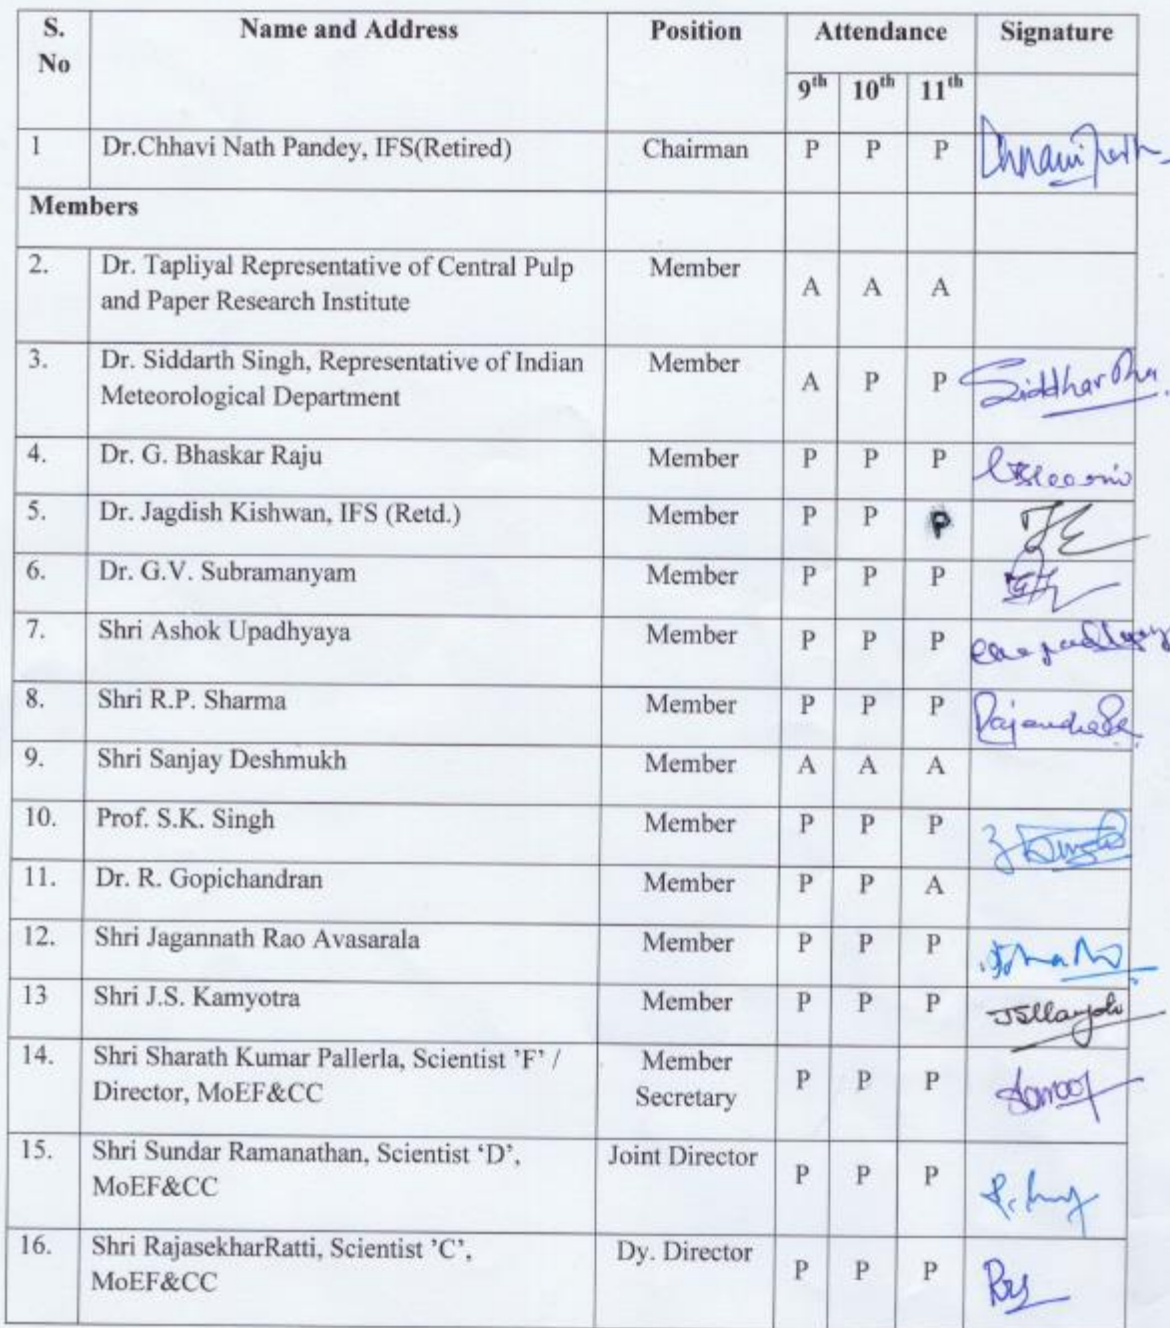 S. No Name and Address Position Attendance Signature
9th 10th 11th
1 Dr.Chhavi Nath Pandey, IFS(Retired) Chairman P P P
Members
2. Dr. Tapliyal Representative of Central Pulp Member A A A
and Paper Research Institute
3. Dr. Siddarth Singh, Representative of Indian Member A P P Siddhartha
Meteorological Department
4. Dr. G. Bhaskar Raju Member P P P
5. Dr. Jagdish Kishwan, IFS (Retd.) Member P P P
6. Dr. G.V. Subramanyam Member P P P
7. Shri Ashok Upadhyaya Member P P P
8. Shri R.P. Sharma Member P P P
9. Shri Sanjay Deshmukh Member A A A
10. Prof. S.K. Singh Member P P P
11. Dr. R. Gopichandran Member P P A
12. Shri Jagannath Rao Avasarala Member P P P
13 Shri J.S. Kamyotra Member P P P
14. Shri Sharath Kumar Pallerla, Scientist 'F' / Member P P P
Director, MoEF&CC Secretary
15. Shri Sundar Ramanathan, Scientist ‘D’, Joint Director P P P
MoEF&CC
16. Shri RajasekharRatti, Scientist 'C', Dy. Director P P P
MoEF&CC